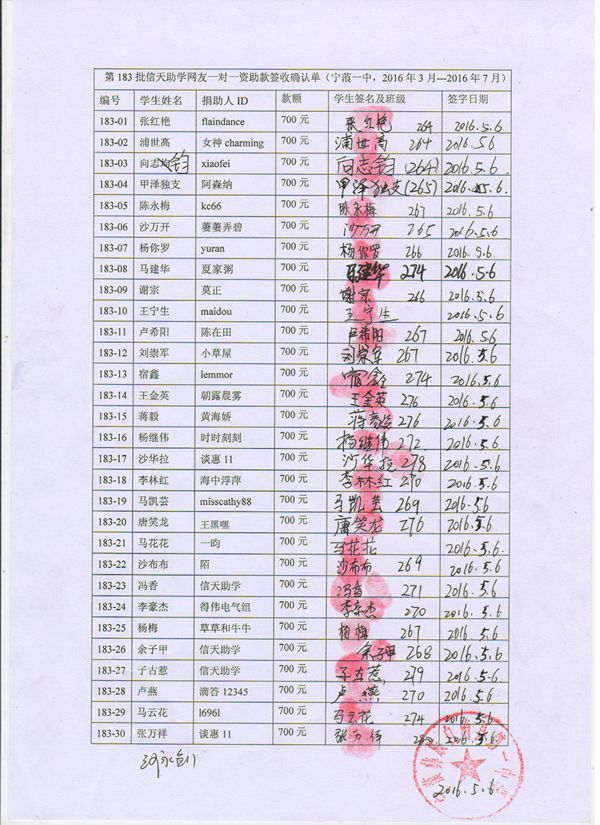 第 183 批信天助学网友一对一资助款签收确认单（宁蒗一中，2016 年 3 月---2016 年 7 月）
编号 学生姓名 捐助人 ID 款额 学生签名及班级 签字日期
183-01 张红艳 flaindance 700 元 张红艳 264 2016.5.6
183-02 浦世高 女神 charming 700 元 浦世高 264 2016.5.6
183-03 向志钧 xiaofei 700 元 向志钧 (264) 2016.5.6.
183-04 甲泽独支 阿森纳 700 元 甲泽独支 (265) 2016.5.6.
183-05 陈永梅 kc66 700 元 陈永梅 267 2016.5.6
183-06 沙万开 萋萋弄碧 700 元 沙万开 265 2016.5.6
183-07 杨你罗 yuran 700 元 杨你罗 266 2016.5.6
183-08 马建华 夏家粥 700 元 马建华 274 2016.5.6
183-09 谢宗 莫正 700 元 谢宗 266 2016.5.6
183-10 王宁生 maidou 700 元 王宁生 2016.5.6
183-11 卢希阳 陈在田 700 元 卢希阳 267 2016.5.6
183-12 刘崇军 小草屋 700 元 刘崇军 267 2016.5.6
183-13 宿鑫 lemmor 700 元 宿鑫 274 2016.5.6
183-14 王金英 朝露晨雾 700 元 王金英 276 2016.5.6
183-15 蒋毅 黄海娇 700 元 276 2016.5.6
183-16 杨继伟 时时刻刻 700 元 杨继伟 272 2016.5.6
183-17 沙华拉 谈惠 11 700 元 沙华拉 278 2016.5.6
183-18 李林红 海中浮萍 700 元 李林红 270 2016.5.6
183-19 马凯芸 misscathy88 700 元 马凯芸 269 2016.5.6
183-20 唐笑龙 王黑嘿 700 元 唐笑龙 276 2016.5.6
183-21 马花花 一昀 700 元 马花花 2016.5.6
183-22 沙布布 陌 700 元 沙布布 269 2016.5.6
183-23 冯香 信天助学 700 元 冯香 271 2016.5.6
183-24 李豪杰 得伟电气组 700 元 李豪杰 270 2016.5.6
183-25 杨梅 草草和牛牛 700 元 杨梅 267 2016.5.6
183-26 余子甲 信天助学 700 元 余子甲 268 2016.5.6
183-27 子古惹 信天助学 700 元 子古惹 279 2016.5.6
183-28 卢燕 滴答 12345 700 元 卢燕 270 2016.5.6
183-29 马云花 l696l 700 元 马云花 274 2016.5.6
183-30 张万祥 谈惠 11 700 元 张万祥 2016.5.6
2016.5.6